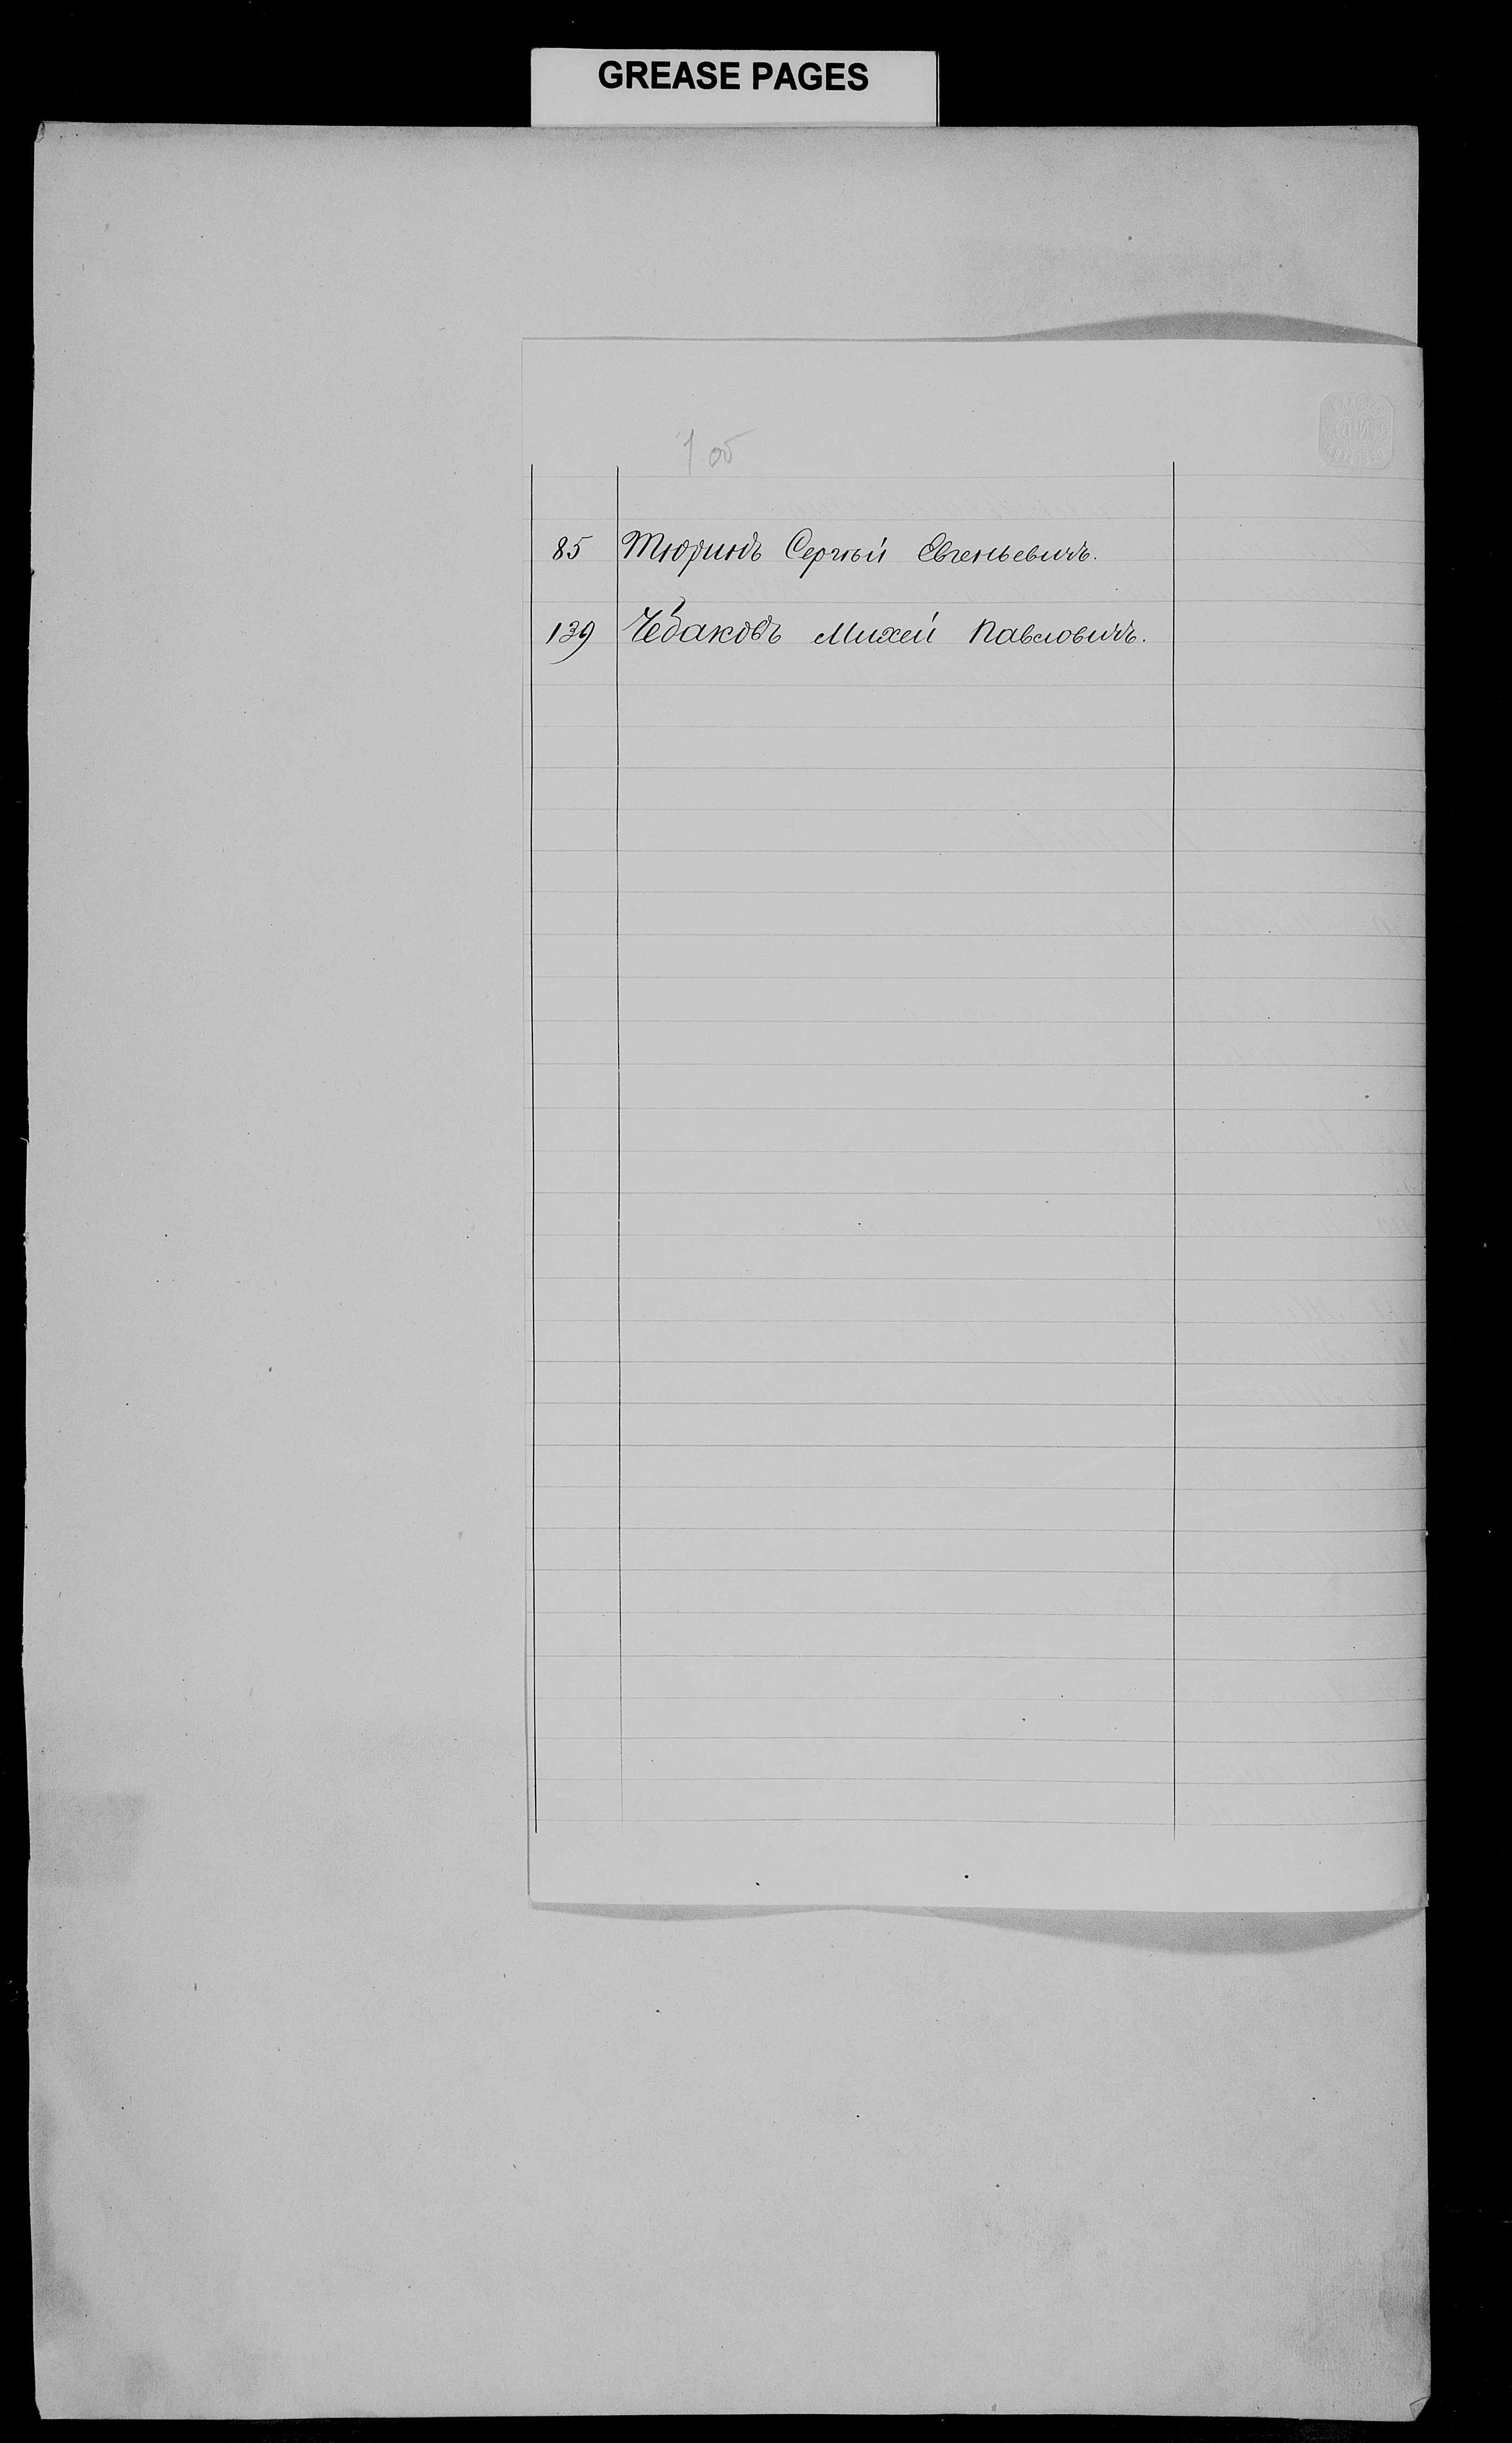 GREASE PAGES
7 об
85 Тюринъ Сергѣй Евгеньевичъ.
139 Чебаковъ Михей Павловичъ.